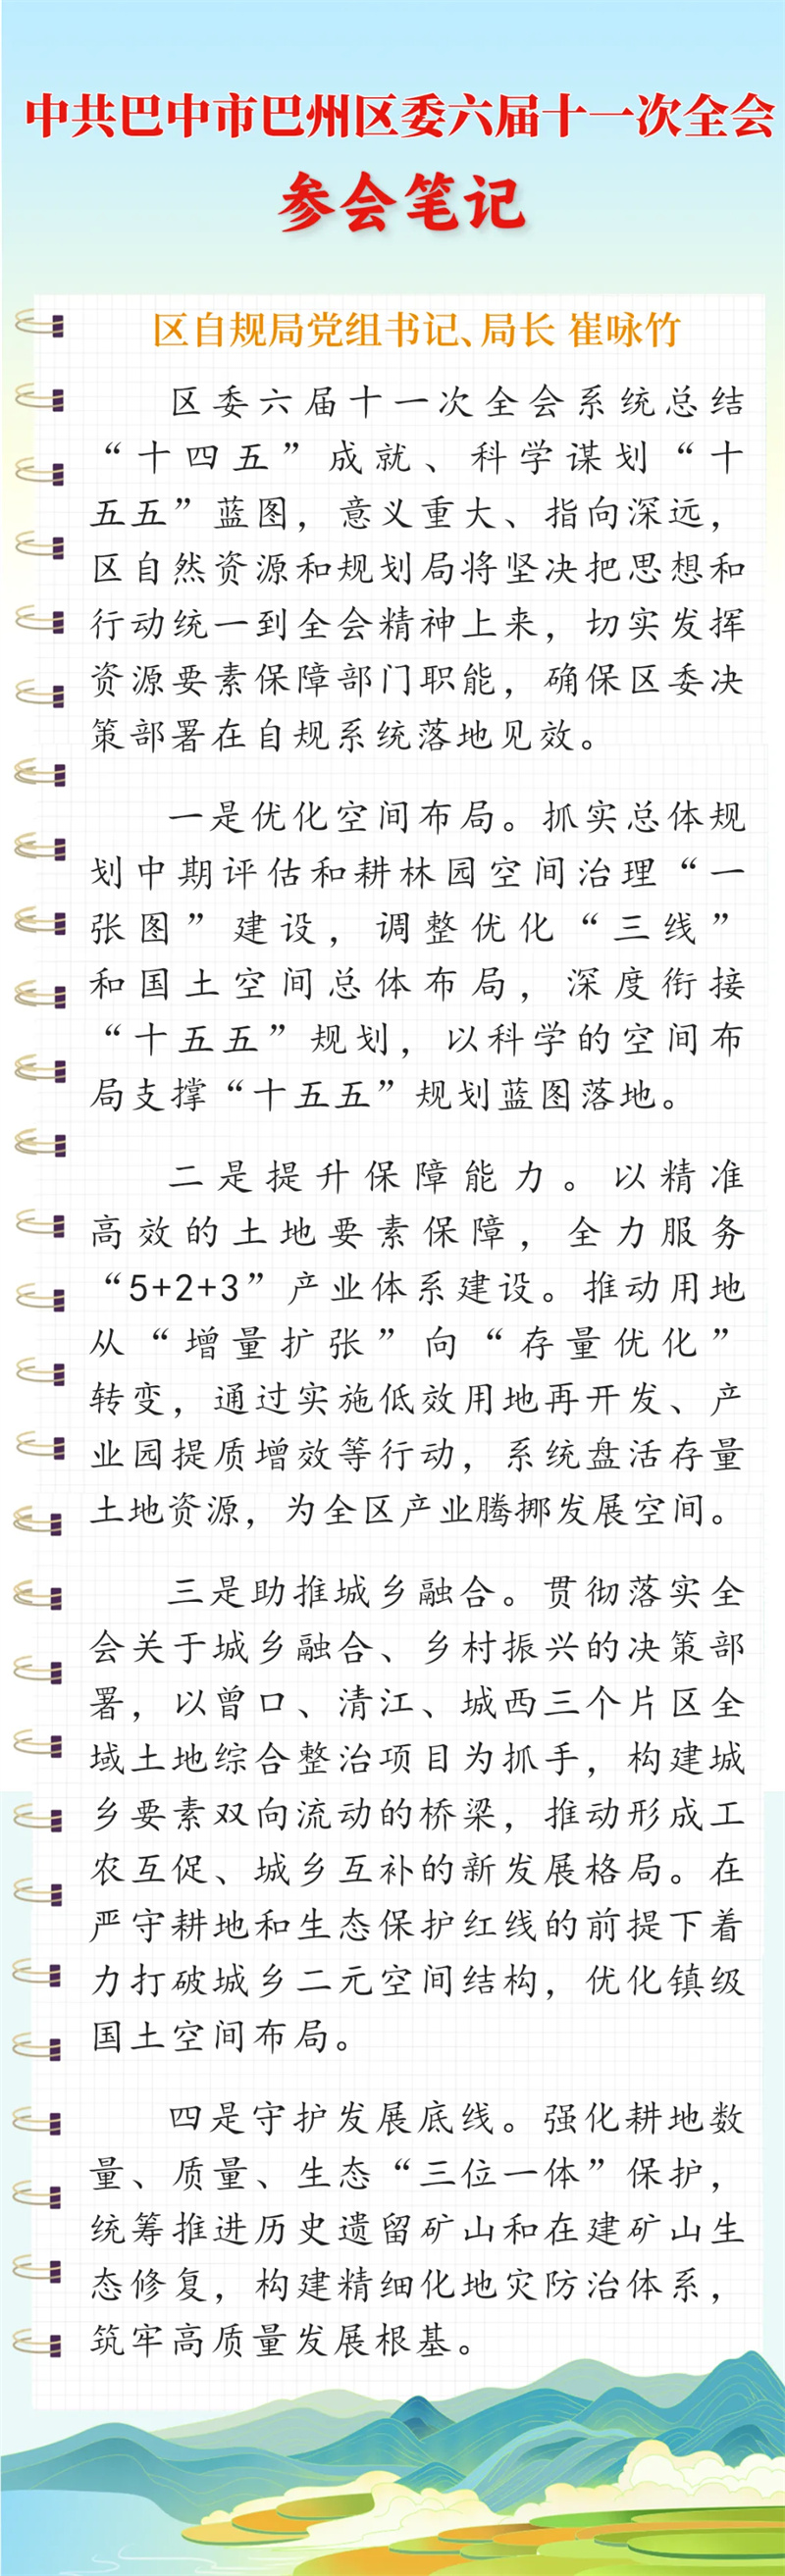 中共巴中市巴州区委六届十一次全会
参会笔记
区自规局党组书记、局长 崔咏竹
区委六届十一次全会系统总结
“十四五”成就、科学谋划“十
五五”蓝图，意义重大、指向深远，
区自然资源和规划局将坚决把思想和
行动统一到全会精神上来，切实发挥
资源要素保障部门职能，确保区委决
策部署在自规系统落地见效。
一是优化空间布局。抓实总体规
划中期评估和耕林园空间治理“一
张图”建设，调整优化“三线”
和国土空间总体布局，深度衔接
“十五五”规划，以科学的空间布
局支撑“十五五”规划蓝图落地。
二是提升保障能力。以精准
高效的土地要素保障，全力服务
“5+2+3”产业体系建设。推动用地
从“增量扩张”向“存量优化”
转变，通过实施低效用地再开发、产
业园提质增效等行动，系统盘活存量
土地资源，为全区产业腾挪发展空间。
三是助推城乡融合。贯彻落实全
会关于城乡融合、乡村振兴的决策部
署，以曾口、清江、城西三个片区全
域土地综合整治项目为抓手，构建城
乡要素双向流动的桥梁，推动形成工
农互促、城乡互补的新发展格局。在
严守耕地和生态保护红线的前提下着
力打破城乡二元空间结构，优化镇级
国土空间布局。
四是守护发展底线。强化耕地数
量、质量、生态“三位一体”保护，
统筹推进历史遗留矿山和在建矿山生
态修复，构建精细化地灾防治体系，
筑牢高质量发展根基。